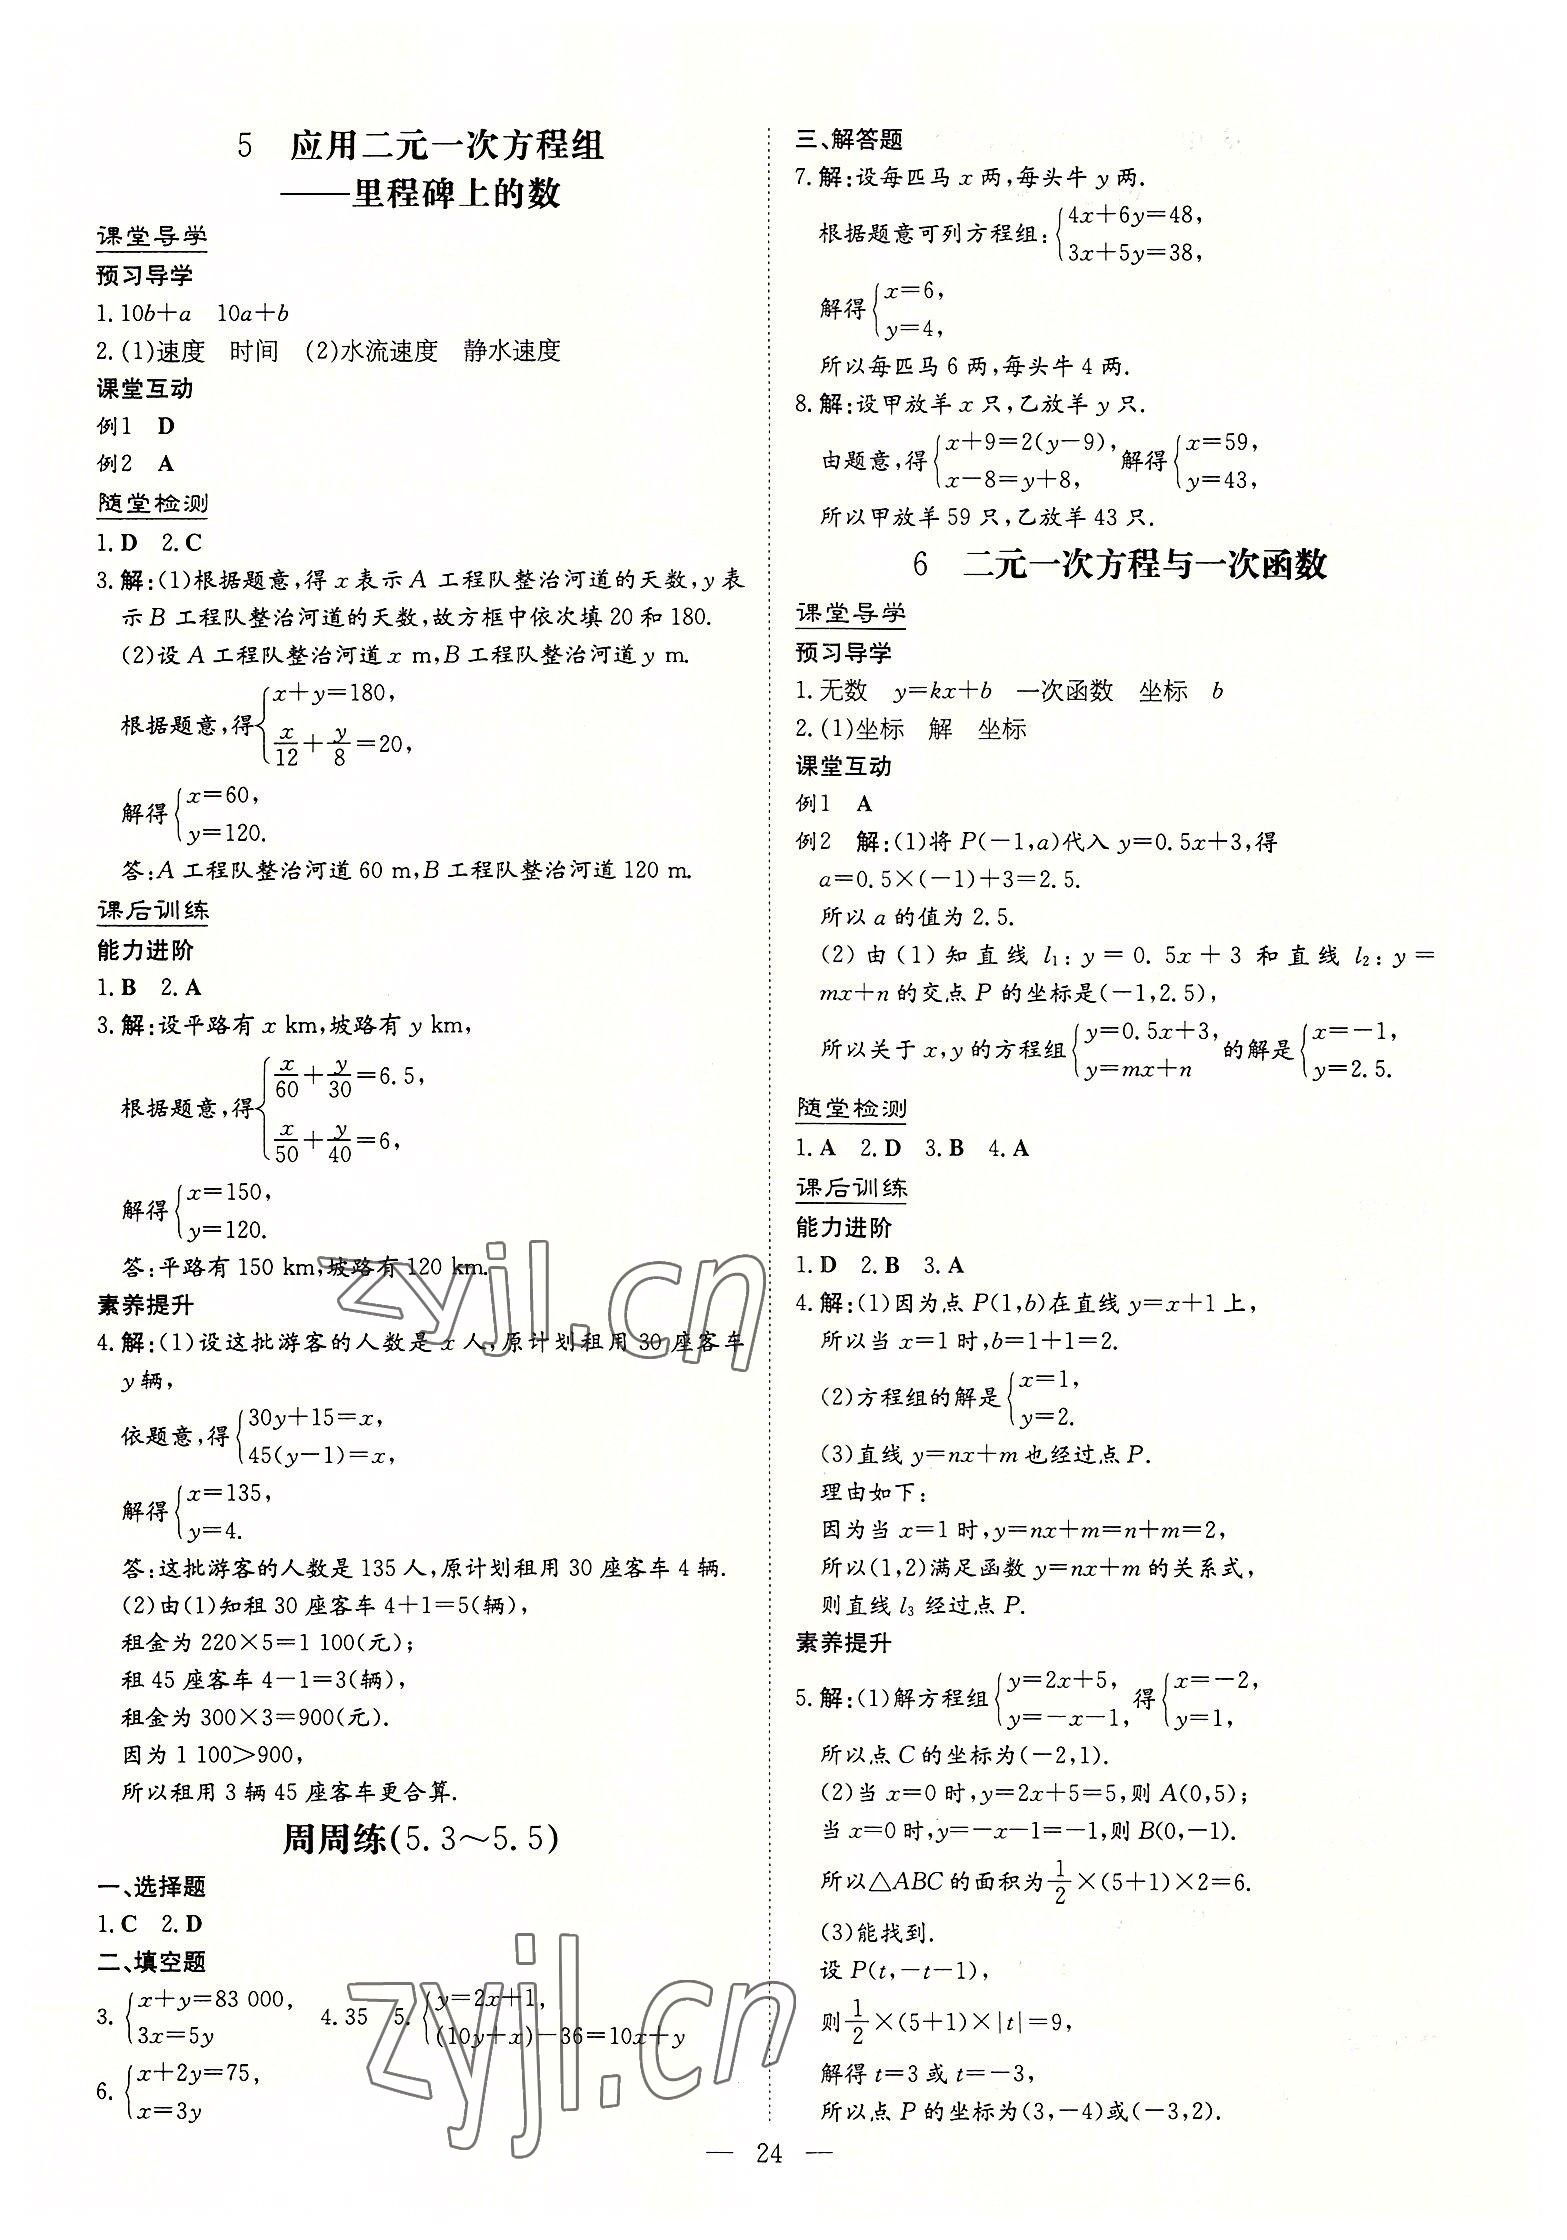 5 应用二元一次方程组
——里程碑上的数
课堂导学
预习导学
1. 10b+a 10a+b
2. (1)速度 时间 (2)水流速度 静水速度
课堂互动
例1 D
例2 A
随堂检测
1. D 2. C
3. 解:(1)根据题意,得 x 表示 A 工程队整治河道的天数,y 表
示 B 工程队整治河道的天数,故方框中依次填 20 和 180.
(2)设 A 工程队整治河道 x m,B 工程队整治河道 y m.
根据题意,得{x+y=180,
x/12+y/8=20,
解得{x=60,
y=120.
答:A 工程队整治河道 60 m,B 工程队整治河道 120 m.
课后训练
能力进阶
1. B 2. A
3. 解:设平路有 x km,坡路有 y km,
根据题意,得{x/60+y/30=6.5,
x/50+y/40=6,
解得{x=150,
y=120.
答:平路有 150 km,坡路有 120 km.
素养提升
4. 解:(1)设这批游客的人数是 x 人,原计划租用 30 座客车
y 辆,
依题意,得{30y+15=x,
45(y-1)=x,
解得{x=135,
y=4.
答:这批游客的人数是 135 人,原计划租用 30 座客车 4 辆.
(2)由(1)知租 30 座客车 4+1=5(辆),
租金为 220×5=1 100(元);
租 45 座客车 4-1=3(辆),
租金为 300×3=900(元).
因为 1 100>900,
所以租用 3 辆 45 座客车更合算.
周周练(5.3~5.5)
一、选择题
1. C 2. D
二、填空题
3. {x+y=83 000,
3x=5y
4. 35 5. {y=2x+1,
(10y+x)-36=10x+y
6. {x+2y=75,
x=3y
三、解答题
7. 解:设每匹马 x 两,每头牛 y 两.
根据题意可列方程组:{4x+6y=48,
3x+5y=38,
解得{x=6,
y=4,
所以每匹马 6 两,每头牛 4 两.
8. 解:设甲放羊 x 只,乙放羊 y 只.
由题意,得{x+9=2(y-9),
x-8=y+8,
解得{x=59,
y=43,
所以甲放羊 59 只,乙放羊 43 只.
6 二元一次方程与一次函数
课堂导学
预习导学
1. 无数 y=kx+b 一次函数 坐标 b
2. (1)坐标 解 坐标
课堂互动
例1 A
例2 解:(1)将 P(-1,a)代入 y=0.5x+3,得
a=0.5×(-1)+3=2.5.
所以 a 的值为 2.5.
(2)由(1)知直线 l₁:y=0.5x+3 和直线 l₂:y=
mx+n 的交点 P 的坐标是(-1,2.5),
所以关于 x,y 的方程组{y=0.5x+3,
y=mx+n
的解是{x=-1,
y=2.5.
随堂检测
1. A 2. D 3. B 4. A
课后训练
能力进阶
1. D 2. B 3. A
4. 解:(1)因为点 P(1,b)在直线 y=x+1 上,
所以当 x=1 时,b=1+1=2.
(2)方程组的解是{x=1,
y=2.
(3)直线 y=nx+m 也经过点 P.
理由如下:
因为当 x=1 时,y=nx+m=n+m=2,
所以(1,2)满足函数 y=nx+m 的关系式,
则直线 l₃ 经过点 P.
素养提升
5. 解:(1)解方程组{y=2x+5,
y=-x-1,
得{x=-2,
y=1,
所以点 C 的坐标为(-2,1).
(2)当 x=0 时,y=2x+5=5,则 A(0,5);
当 x=0 时,y=-x-1=-1,则 B(0,-1).
所以△ABC 的面积为 1/2×(5+1)×2=6.
(3)能找到.
设 P(t,-t-1),
则 1/2×(5+1)×|t|=9,
解得 t=3 或 t=-3,
所以点 P 的坐标为(3,-4)或(-3,2).
— 24 —
zyjl.cn
zyjl.cn